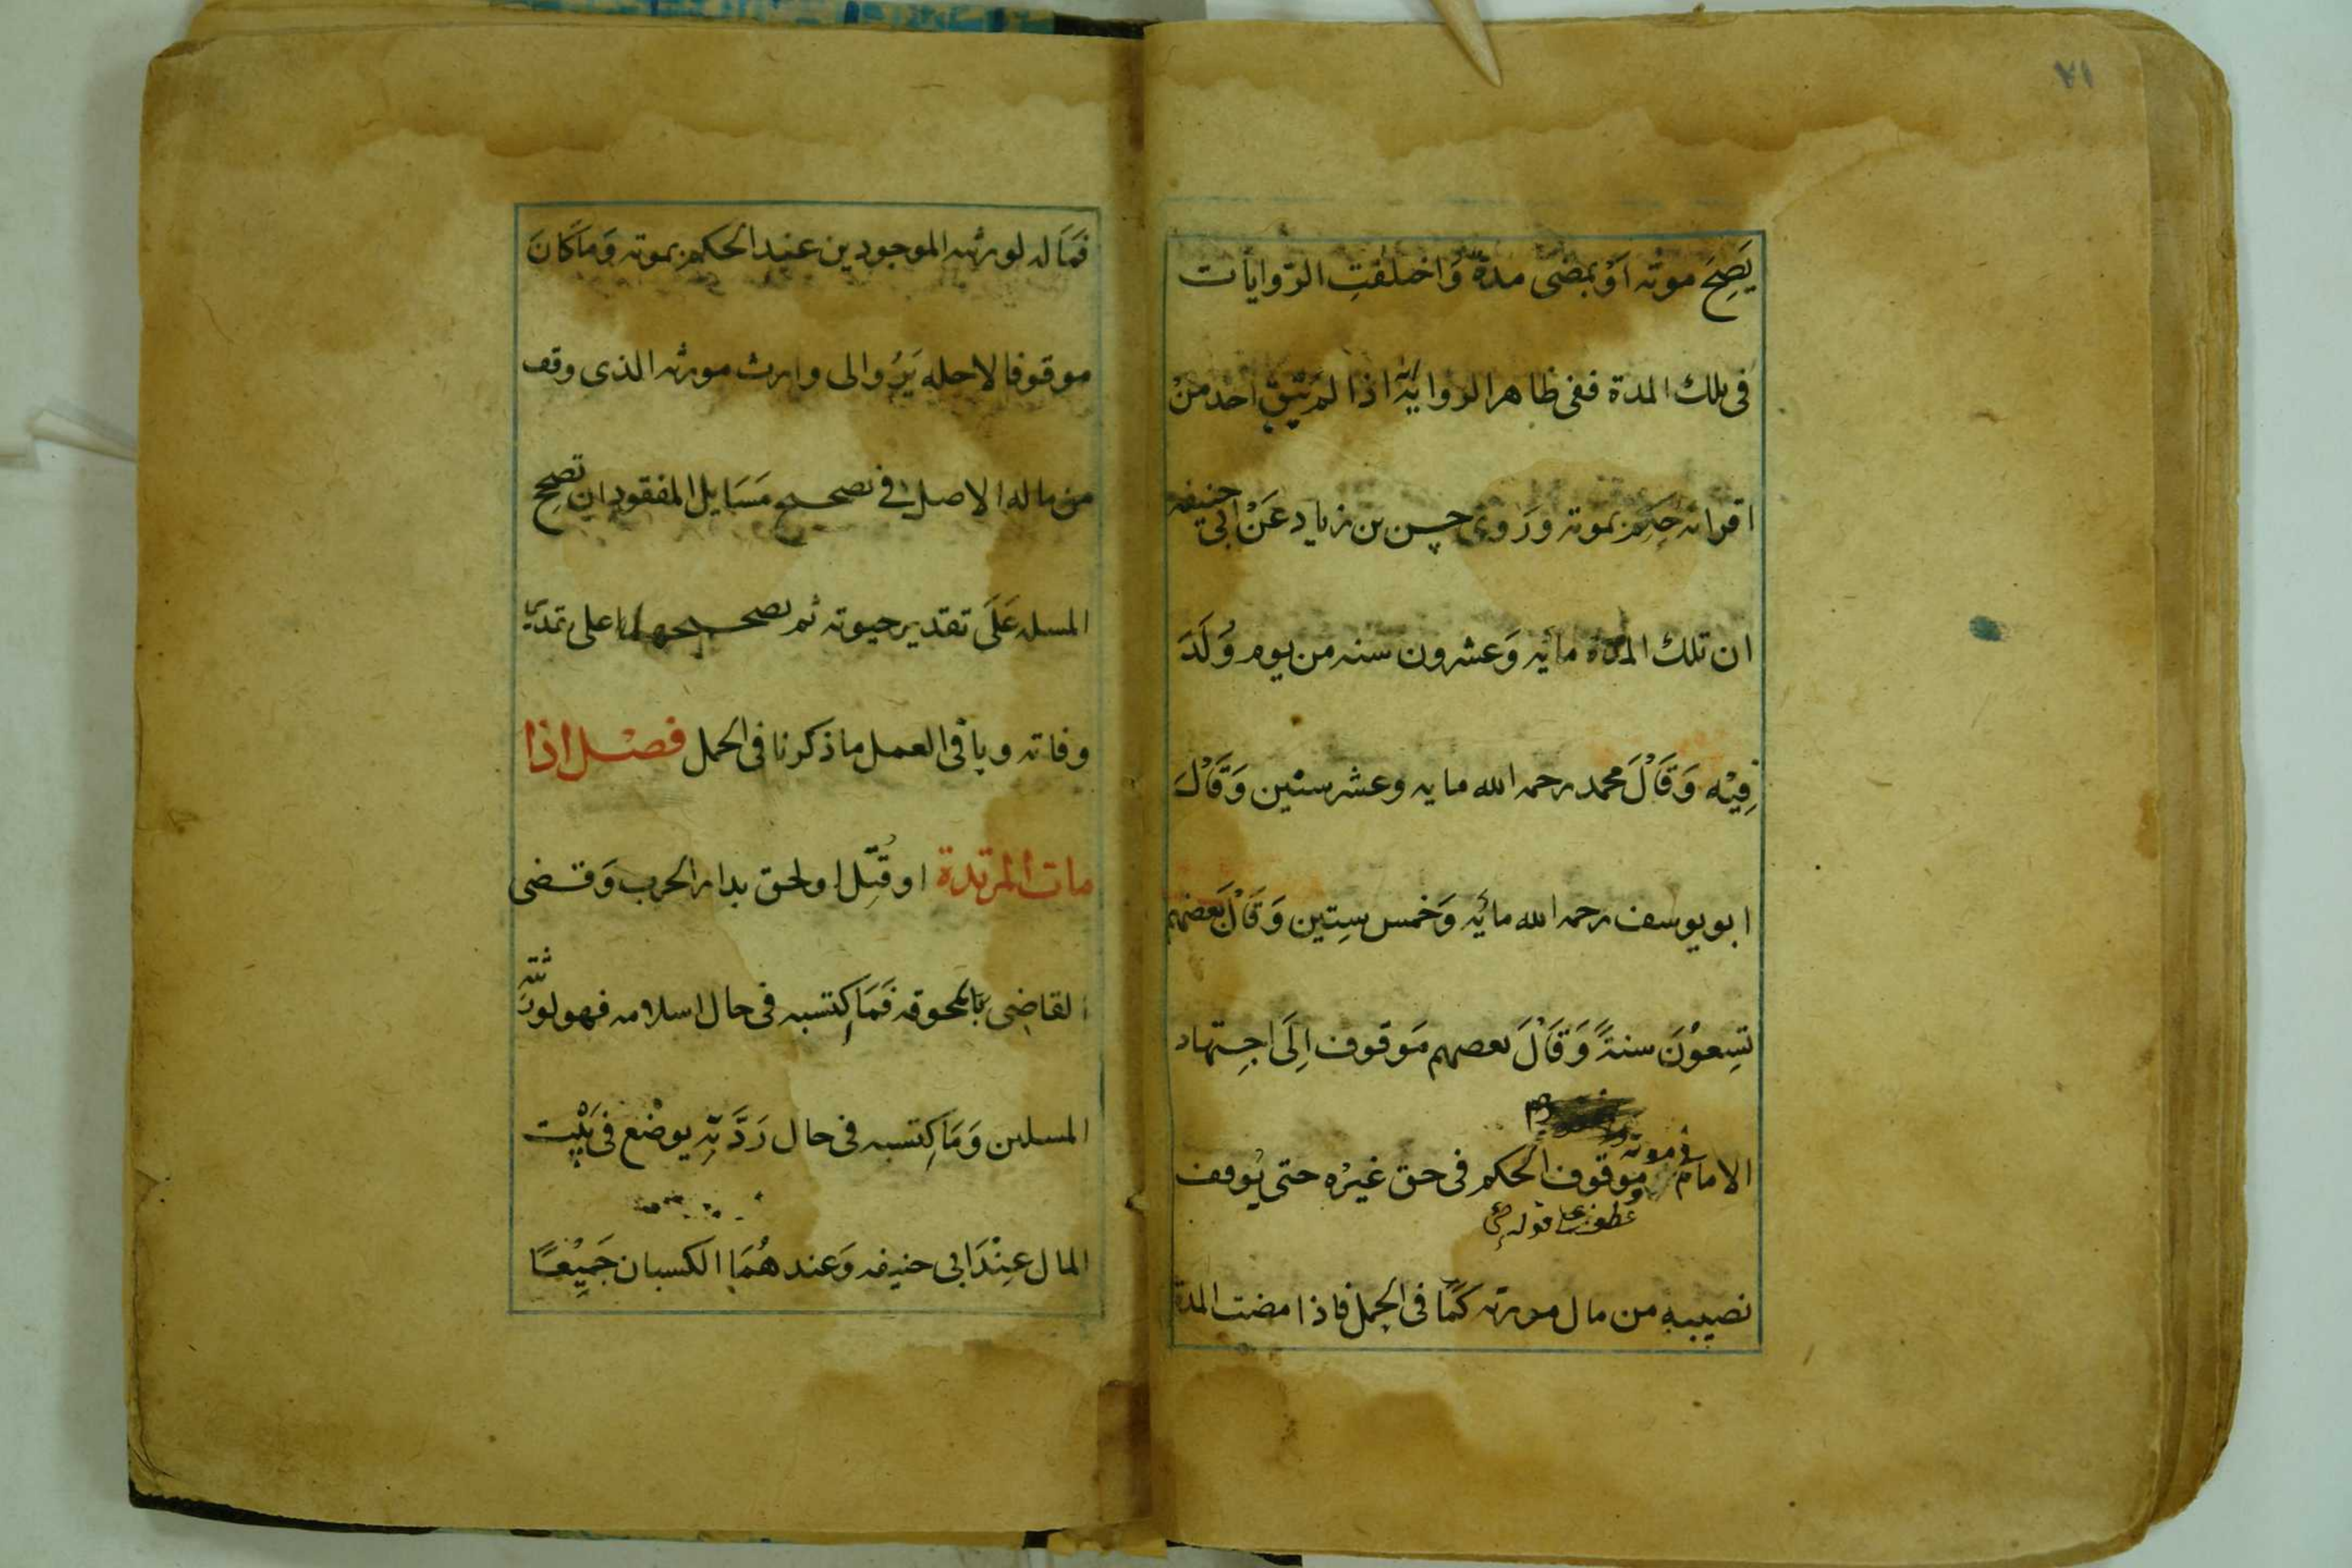 ٧١
يَصِحَ موته اَوْ بمضى مدة وَاختلفتِ الرّوايات
فى تلك المدة ففى ظاهر الروايَة اذا لم يَبْقِ احد مِنْ
اقرانه حكم بموته وَرَوى حسن بن زياد عَنْ ابى حنيفه
ان تلك المدة مائه وَعشرون سنه من يوم وُلَدَ
فِيْه وَقَاْلَ محمد رحمه الله مايه وعشر سنْين وَقَاْلَ
ابو يوسف رحمه الله مائه وَخمس سِتين وَقَاْلَ بَعضهم
تِسِعوْنَ سنةً وَقَاْلَ بعضهم مَوقوف اِلَى اجِتهاد
الامام فى موته وموقوف الحكم فى حق غيْره حتى يُوقف
عطف على قوله حى
نصيبه من مال مورثه كَمَا فى الحمل فاذا مضت المدة
فمَاَله لورثته الموجودين عند الحكم بموته وَماَكانَ
موقوفا لاجله يَرُدُ الى وارث مورثه الذى وقف
من ماله الاصل فى تصحيح مَسَايل المفقود ان تصحح
المسله عَلَى تقدير حيوته ثم تصحيحها على تقدير
وفاته وباقى العمل ما ذكرنا فى الحمل فصْل اذا
مات المرتدة او قُتِّل او لحق بدار الحرب وَقضى
القاضِى بَالحوقه فَمَا اِكتسبه فى حال اسلامه فهو لورثته
المسلين وَمَا كِتسبه فى حال رَدَّتِّه يوضْع فى بَيْت
المال عِنْدَ ابى حنيفه وَعند هُمَا الكسبان جَمِيْعًا